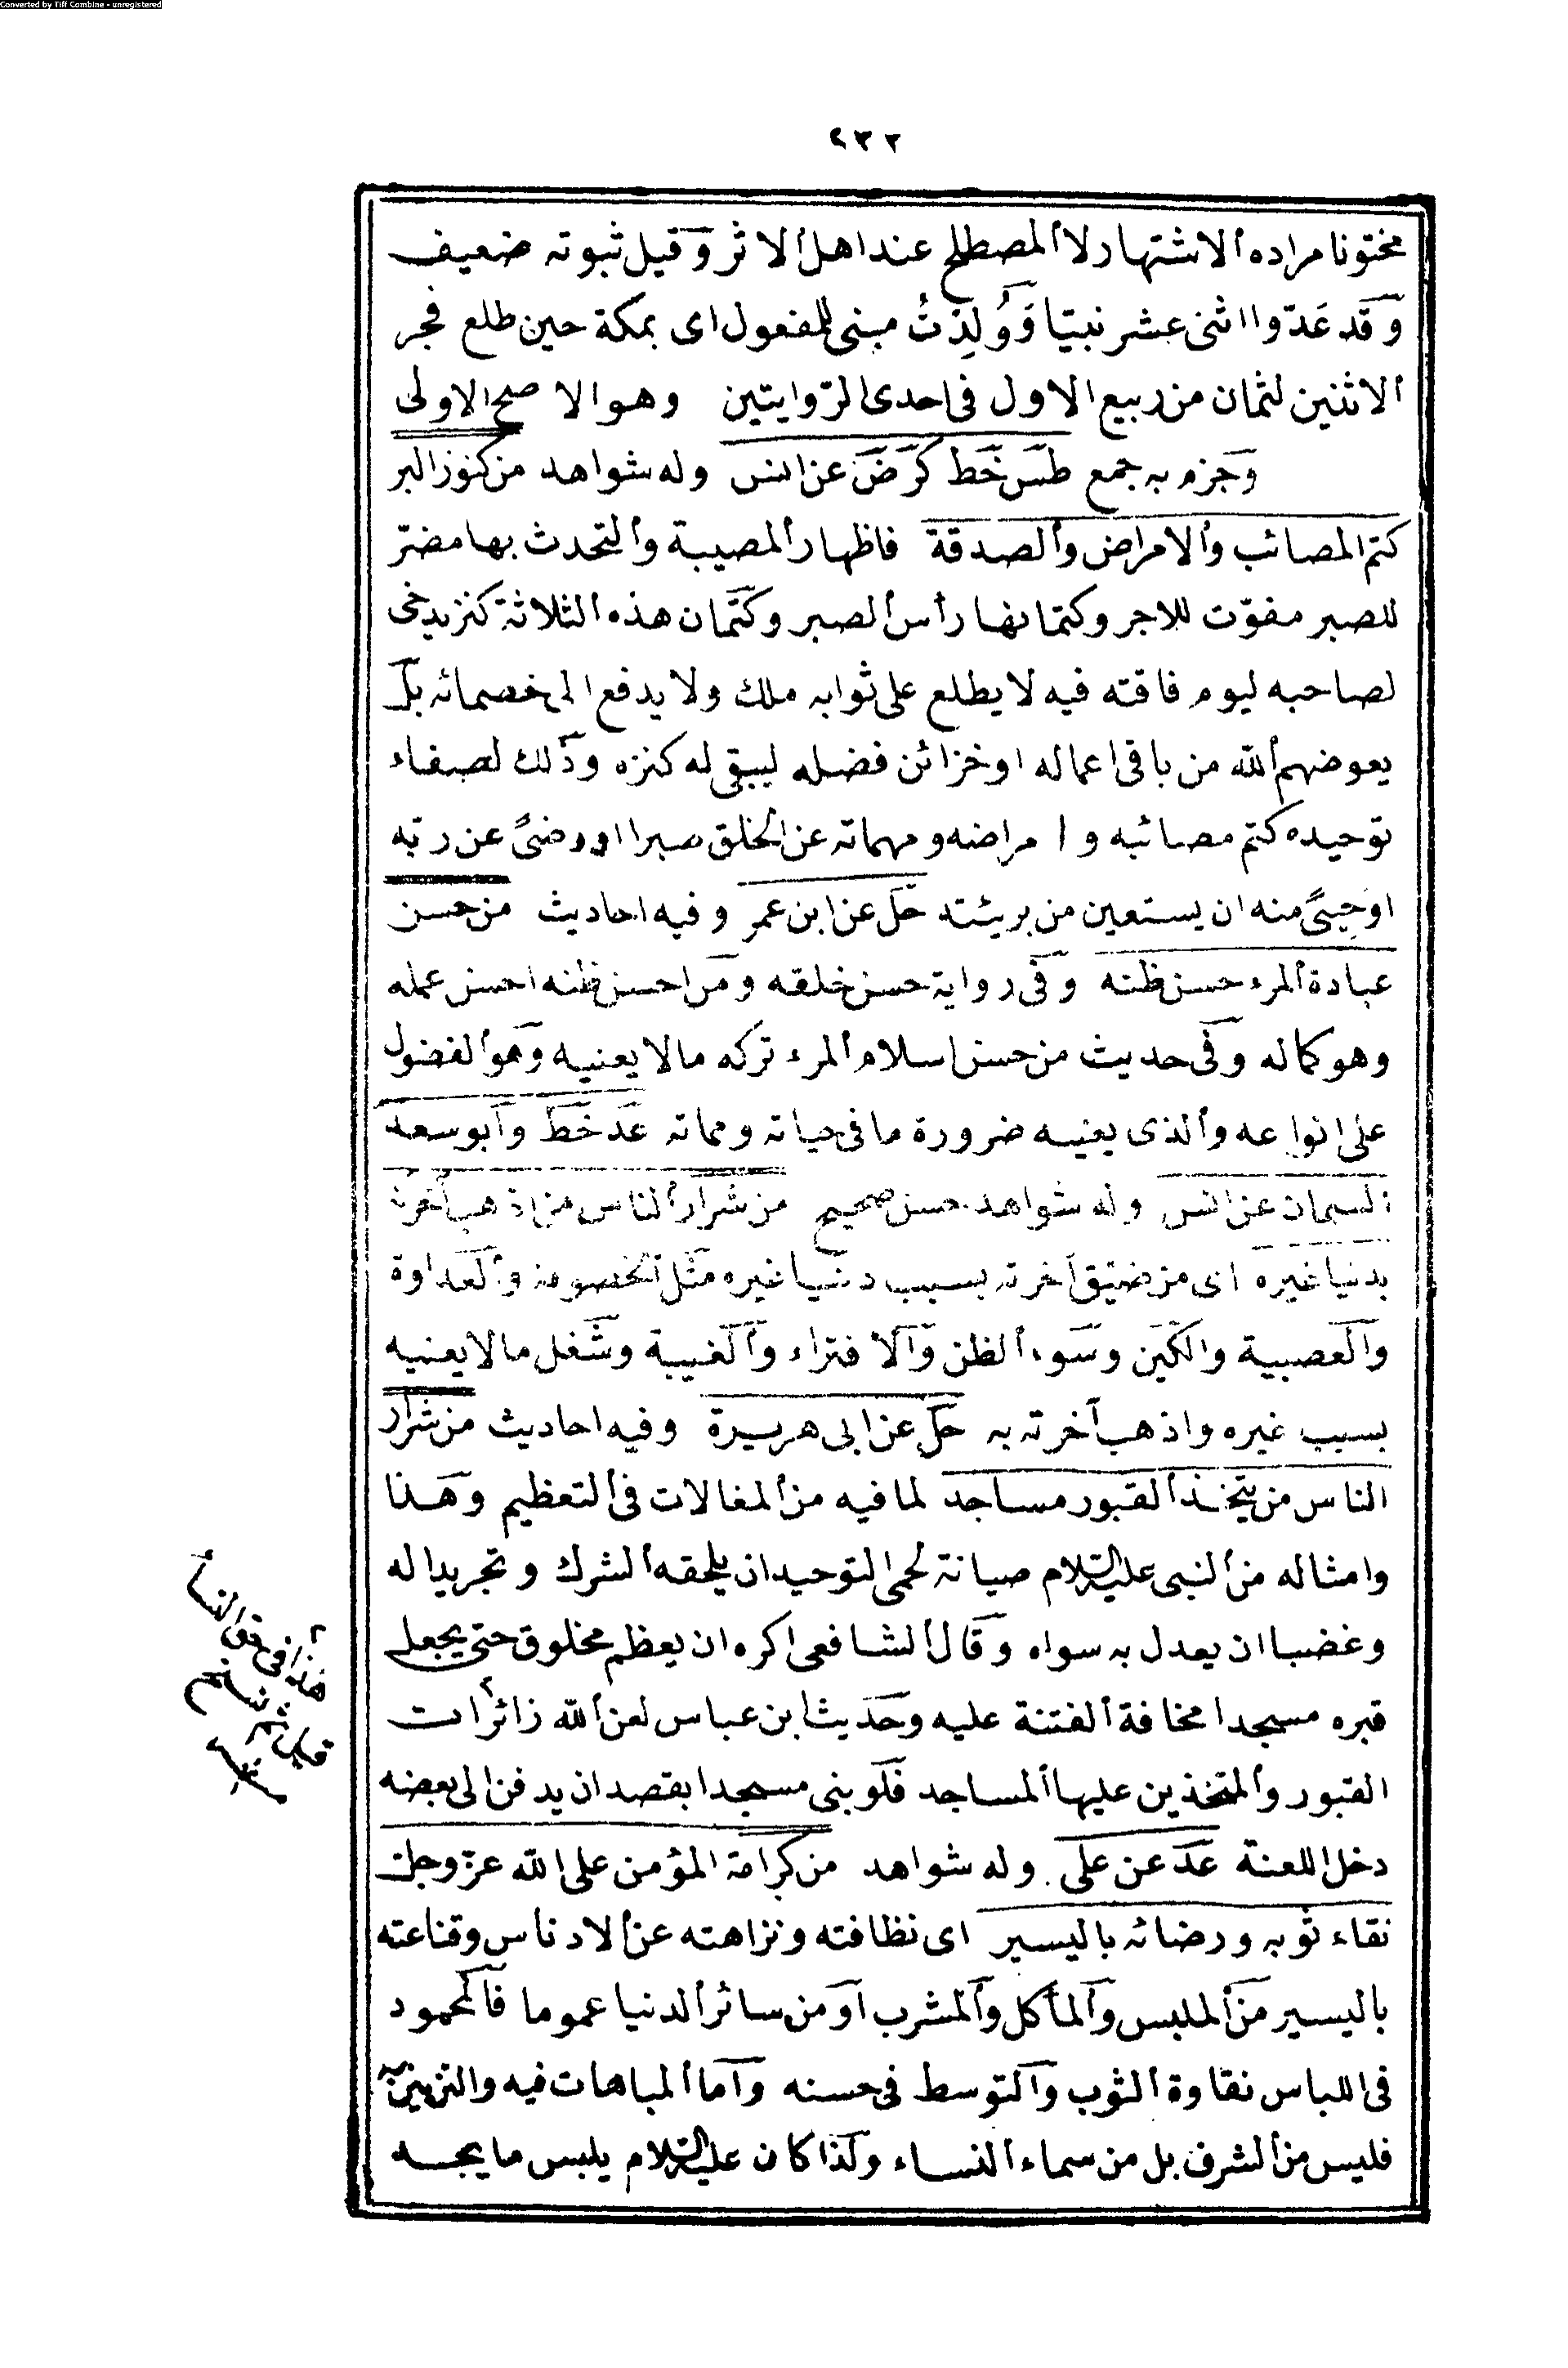 Converted by Tiff Combine - unregistered
٤٣٢
مختونا مراده الاشتهار لا المصطلح عند اهل الاثر وقيل ثبوته ضعيف
وقد عدّوا اثنى عشر نبيّا وَوُلِدْتُ مبنى للمفعول اى بمكة حين طلع فجر
الاثنين لثمان من ربيع الاول فى احدى الرّوايتين وهو الاصح الاولى
وجزم به جمع طس خط كر ض عن انس وله شواهد من كنوز البر
كتم المصائب والامراض والصدقة فاظهار المصيبة والتحدث بها مضرّ
للصبر مفوّت للاجر وكتمانها رأس الصبر وكتمان هذه الثلاثة كنز يدخر
لصاحبه ليوم فاقته فيه لا يطلع على ثوابه ملك ولا يدفع الى خصمائه بل
يعوضهم الله من باقى اعماله او خزائن فضله ليبقى له كنزه وذلك لصفاء
توحيده كتم مصائبه وامراضه ومهماته عن الخلق صبرا او رضىً عن ربّه
او حيىً منه ان يستعين من بريئته حل عن ابن عمر وفيه احاديث من حسن
عبادة المرء حسن ظنه وفى رواية حسن خلقه ومن احسن ظنه احسن عمله
وهو كماله وفى حديث من حسن اسلام المرء تركه ما لا يعنيه وهو الفضول
على انواعه والذى يعنيه ضرورة ما فى حياته ومماته عد خط وابو سعد
السمان عن انس وله شواهد حسن صحيح من شرار الناس من اذهب آخرته
بدنيا غيره اى من ضيق آخرته بسبب دنيا غيره مثل الخصومة والعداوة
والعصبية والكين وسوء الظن والافتراء والغيبة وشغل ما لا يعنيه
بسبب غيره واذهب آخرته به حل عن ابى هريرة وفيه احاديث من شرار
الناس من يتخذ القبور مساجد لما فيه من المغالات فى التعظيم وهذا
وامثاله من النبى عليه السلام صيانة لحمى التوحيد ان يلحقه الشرك وتجريدا له
وغضبا ان يعدل به سواه وقال الشافعى اكره ان يعظم مخلوق حتى يجعل
قبره مسجدا مخافة الفتنة عليه وحديث ابن عباس لعن الله زائرات
القبور والمتخذين عليها المساجد فلو بنى مسجدا بقصد ان يدفن الى بعضه
دخل اللعنة عد عن على وله شواهد من كرامة المؤمن على الله عز وجل
نقاء ثوبه ورضائه باليسير اى نظافته ونزاهته عن الادناس وقناعته
باليسير من الملبس والمأكل والمشرب او من سائر الدنيا عموما فالمحمود
فى اللباس نقاوة الثوب والتوسط فى حسنه واما المباهات فيه والتزيين به
فليس من الشرف بل من سماء النساء ولذا كان عليه السلام يلبس ما يجده
هذا فى حق النسأ